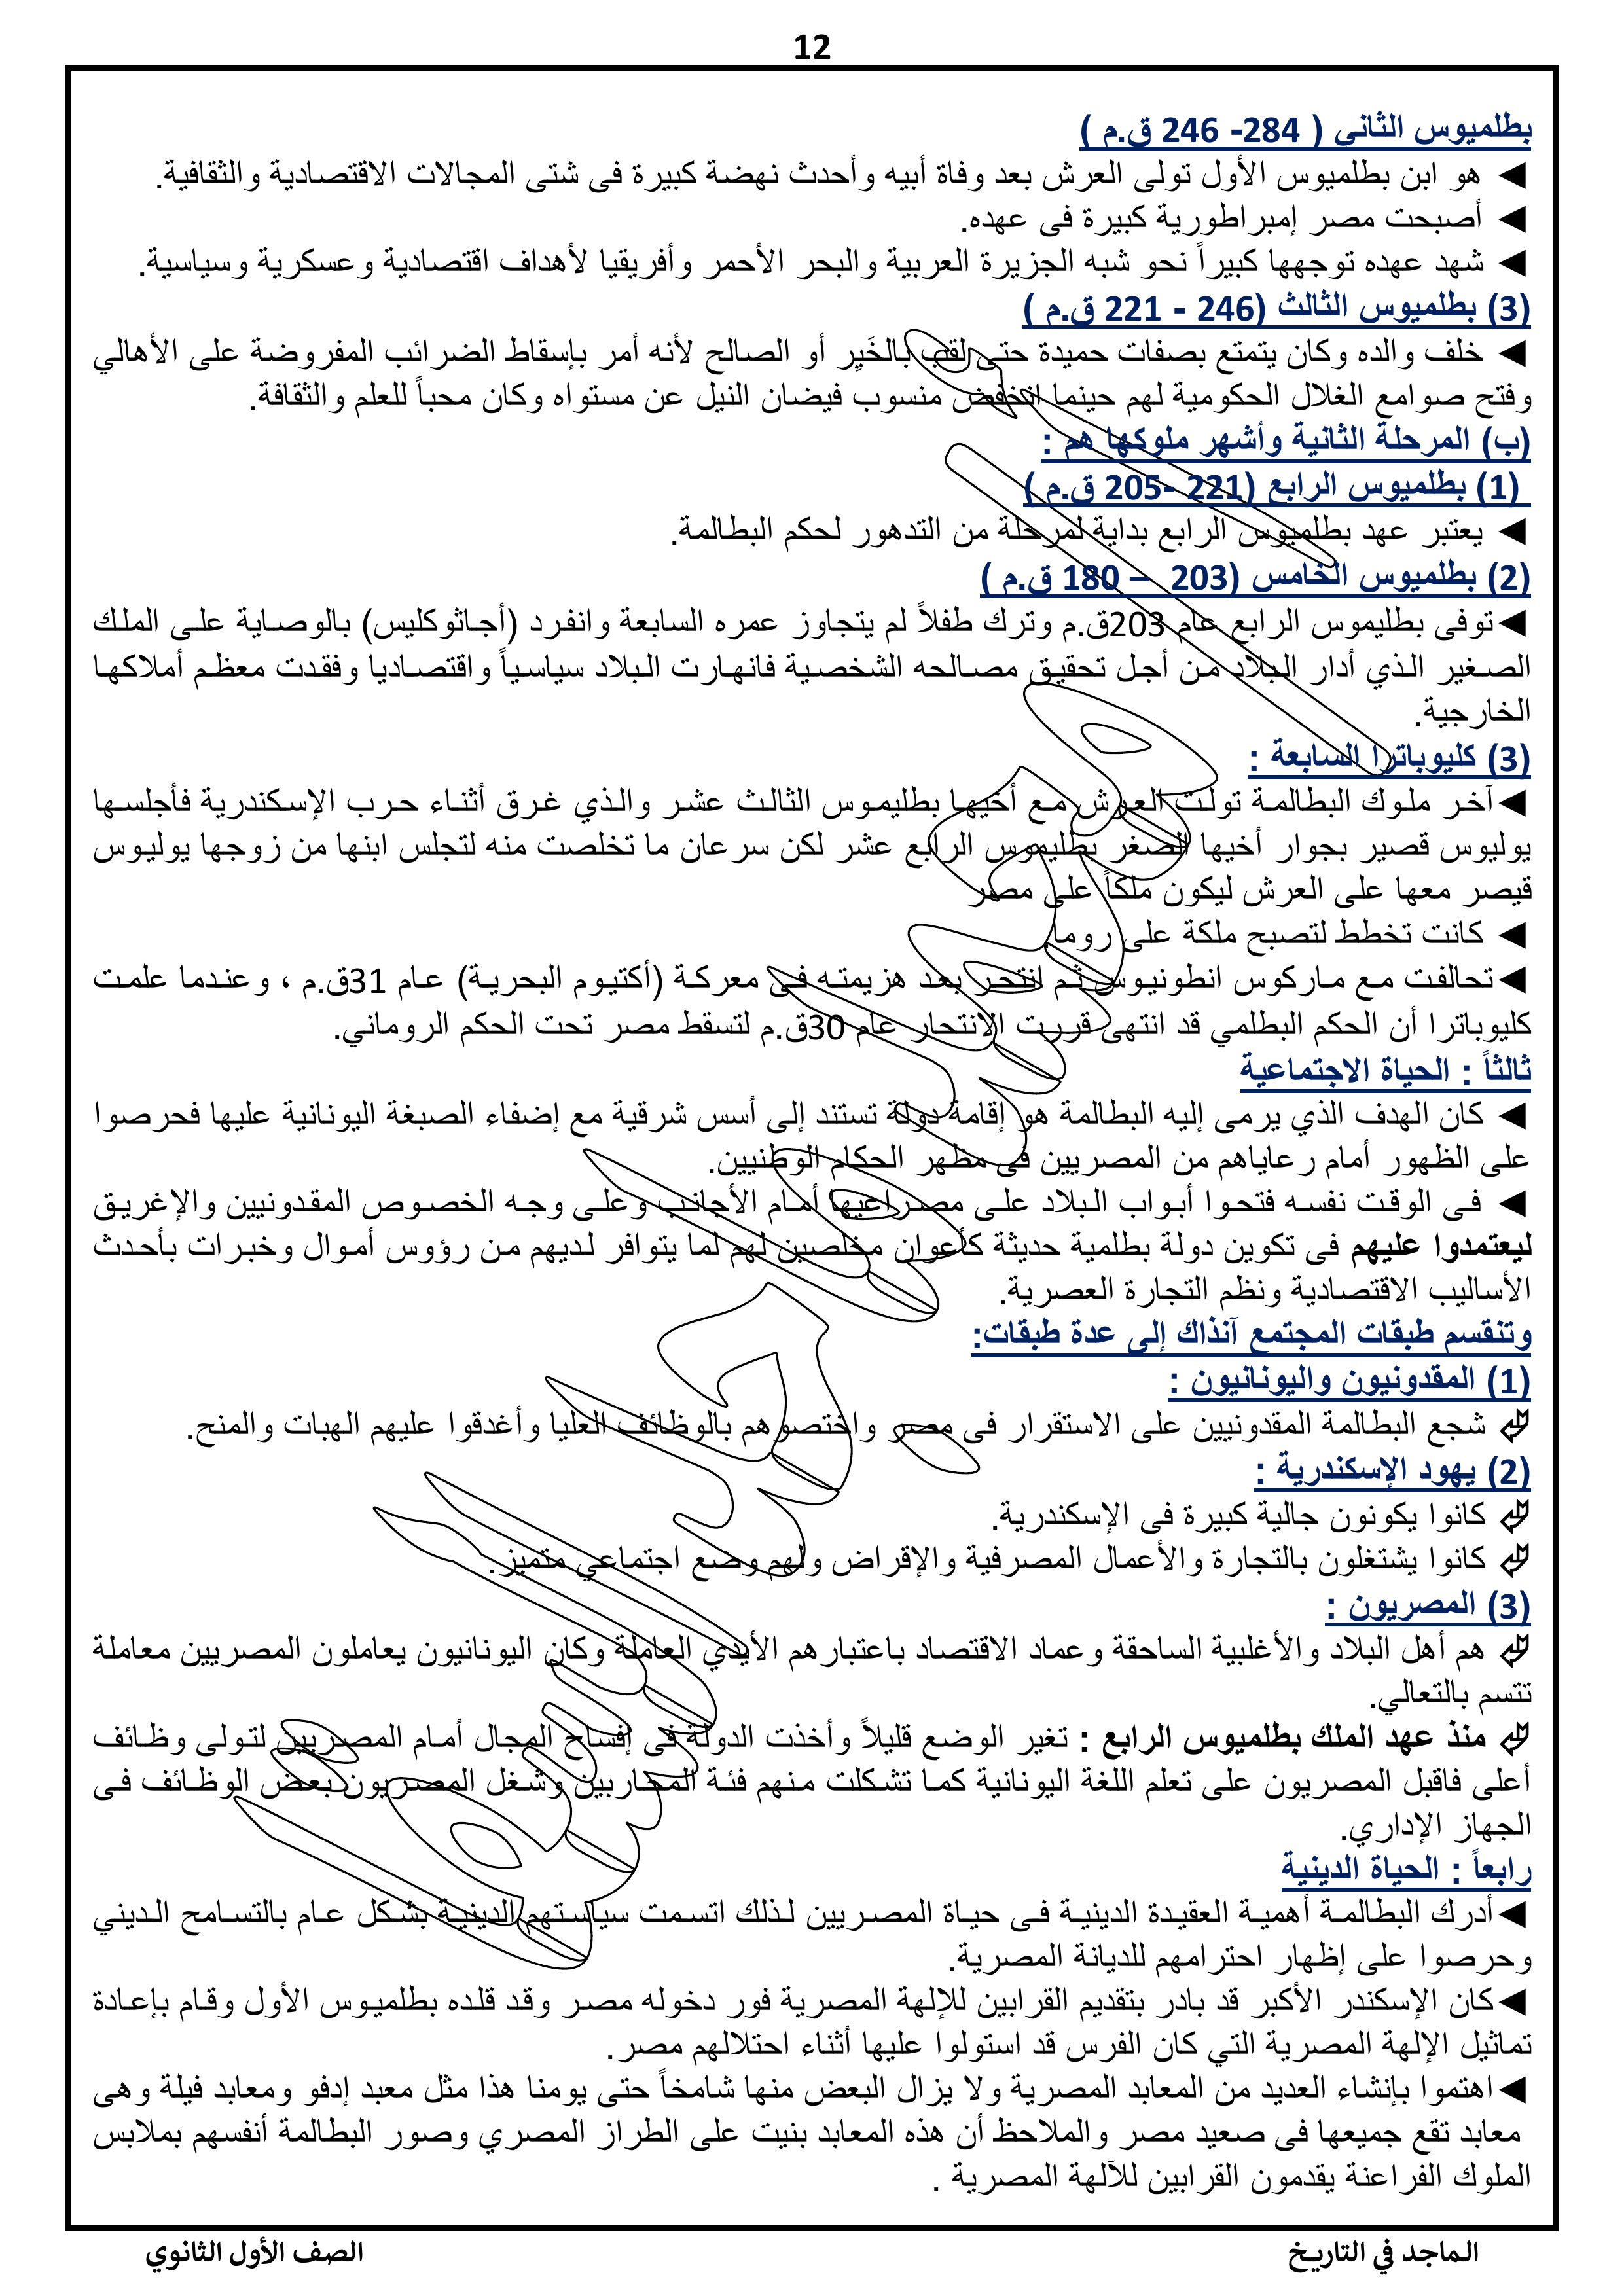 12
بطلميوس الثانى ( 284- 246 ق.م )
◄ هو ابن بطلميوس الأول تولى العرش بعد وفاة أبيه وأحدث نهضة كبيرة فى شتى المجالات الاقتصادية والثقافية.
◄ أصبحت مصر إمبراطورية كبيرة فى عهده.
◄ شهد عهده توجهها كبيراً نحو شبه الجزيرة العربية والبحر الأحمر وأفريقيا لأهداف اقتصادية وعسكرية وسياسية.
(3) بطلميوس الثالث (246 - 221 ق.م )
◄ خلف والده وكان يتمتع بصفات حميدة حتى لقب بالخَيِر أو الصالح لأنه أمر بإسقاط الضرائب المفروضة على الأهالي
وفتح صوامع الغلال الحكومية لهم حينما انخفض منسوب فيضان النيل عن مستواه وكان محباً للعلم والثقافة.
(ب) المرحلة الثانية وأشهر ملوكها هم :
(1) بطلميوس الرابع (221 -205 ق.م )
◄ يعتبر عهد بطلميوس الرابع بداية لمرحلة من التدهور لحكم البطالمة.
(2) بطلميوس الخامس (203 – 180 ق.م )
◄توفى بطليموس الرابع عام 203ق.م وترك طفلاً لم يتجاوز عمره السابعة وانفرد (أجاثوكليس) بالوصاية على الملك
الصغير الذي أدار البلاد من أجل تحقيق مصالحه الشخصية فانهارت البلاد سياسياً واقتصاديا وفقدت معظم أملاكها
الخارجية.
(3) كليوباترا السابعة :
◄آخر ملوك البطالمة تولت العرش مع أخيها بطليموس الثالث عشر والذي غرق أثناء حرب الإسكندرية فأجلسها
يوليوس قصير بجوار أخيها الصغر بطليموس الرابع عشر لكن سرعان ما تخلصت منه لتجلس ابنها من زوجها يوليوس
قيصر معها على العرش ليكون ملكاً على مصر
◄ كانت تخطط لتصبح ملكة على روما.
◄تحالفت مع ماركوس انطونيوس ثم انتحر بعد هزيمته فى معركة (أكتيوم البحرية) عام 31ق.م ، وعندما علمت
كليوباترا أن الحكم البطلمي قد انتهى قررت الانتحار عام 30ق.م لتسقط مصر تحت الحكم الروماني.
ثالثاً : الحياة الاجتماعية
◄ كان الهدف الذي يرمى إليه البطالمة هو إقامة دولة تستند إلى أسس شرقية مع إضفاء الصبغة اليونانية عليها فحرصوا
على الظهور أمام رعاياهم من المصريين فى مظهر الحكام الوطنيين.
◄ فى الوقت نفسه فتحوا أبواب البلاد على مصراعيها أمام الأجانب وعلى وجه الخصوص المقدونيين والإغريق
ليعتمدوا عليهم فى تكوين دولة بطلمية حديثة كأعوان مخلصين لهم لما يتوافر لديهم من رؤوس أموال وخبرات بأحدث
الأساليب الاقتصادية ونظم التجارة العصرية.
وتنقسم طبقات المجتمع آنذاك إلى عدة طبقات:
(1) المقدونيون واليونانيون :
شجع البطالمة المقدونيين على الاستقرار فى مصر واختصوهم بالوظائف العليا وأغدقوا عليهم الهبات والمنح.
(2) يهود الإسكندرية :
كانوا يكونون جالية كبيرة فى الإسكندرية.
كانوا يشتغلون بالتجارة والأعمال المصرفية والإقراض ولهم وضع اجتماعي متميز.
(3) المصريون :
هم أهل البلاد والأغلبية الساحقة وعماد الاقتصاد باعتبارهم الأيدي العاملة وكان اليونانيون يعاملون المصريين معاملة
تتسم بالتعالي.
منذ عهد الملك بطلميوس الرابع : تغير الوضع قليلاً وأخذت الدولة فى إفساح المجال أمام المصريين لتولى وظائف
أعلى فاقبل المصريون على تعلم اللغة اليونانية كما تشكلت منهم فئة المحاربين وشغل المصريون بعض الوظائف فى
الجهاز الإداري.
رابعاً : الحياة الدينية
◄أدرك البطالمة أهمية العقيدة الدينية فى حياة المصريين لذلك اتسمت سياستهم الدينية بشكل عام بالتسامح الديني
وحرصوا على إظهار احترامهم للديانة المصرية.
◄كان الإسكندر الأكبر قد بادر بتقديم القرابين للإلهة المصرية فور دخوله مصر وقد قلده بطلميوس الأول وقام بإعادة
تماثيل الإلهة المصرية التي كان الفرس قد استولوا عليها أثناء احتلالهم مصر.
◄اهتموا بإنشاء العديد من المعابد المصرية ولا يزال البعض منها شامخاً حتى يومنا هذا مثل معبد إدفو ومعابد فيلة وهى
معابد تقع جميعها فى صعيد مصر والملاحظ أن هذه المعابد بنيت على الطراز المصري وصور البطالمة أنفسهم بملابس
الملوك الفراعنة يقدمون القرابين للآلهة المصرية .
الماجد في التاريخ
الصف الأول الثانوي